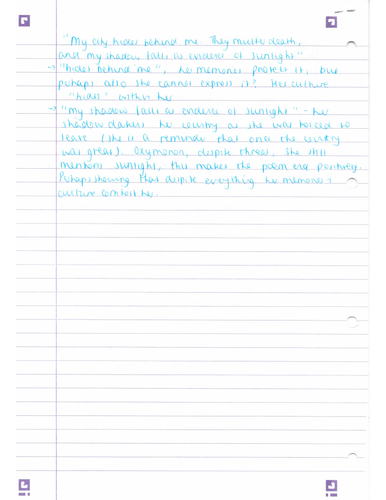 "My city hides behind me. They mutter death,
and my shadow falls as evidence of sunlight"
→ "hides behind me", her memories protect it, but
perhaps also she cannot express it? Her culture
"hides" within her
→ "my shadow falls as evidence of sunlight" - her
shadow darkens her country as she was forced to
leave (she is a reminder that once the country
was great). Oxymoron, despite threat, she still
mentions sunlight, this makes the poem end positively.
Perhaps showing that despite everything her memories +
culture comfort her.